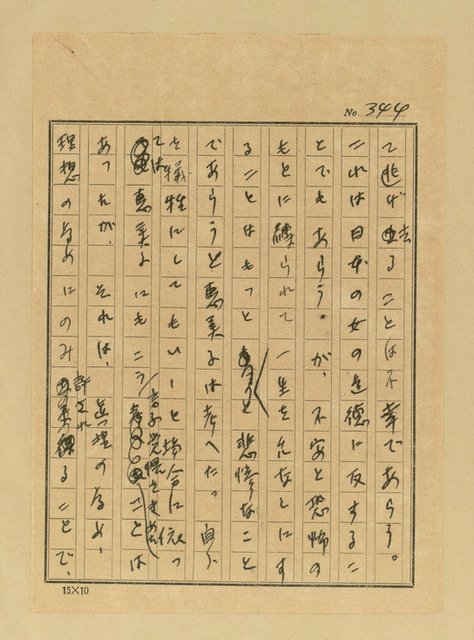 No. 344
て逃げ去ることは不幸であらう。
これは日本の女の道徳に反するこ
とでもあらう。が、不安と恐怖の
もとに縛られて一生を台なしにす
ることはもっと悲惨なこと
であらうと恵美子は考へた。自分
を犠牲にしてもいゝと場合に依っ
ては恵美子にもこう言ふ覚悟をきめることは
あったが、それは、真理のため、
理想のためにのみ許されることで、
15×10